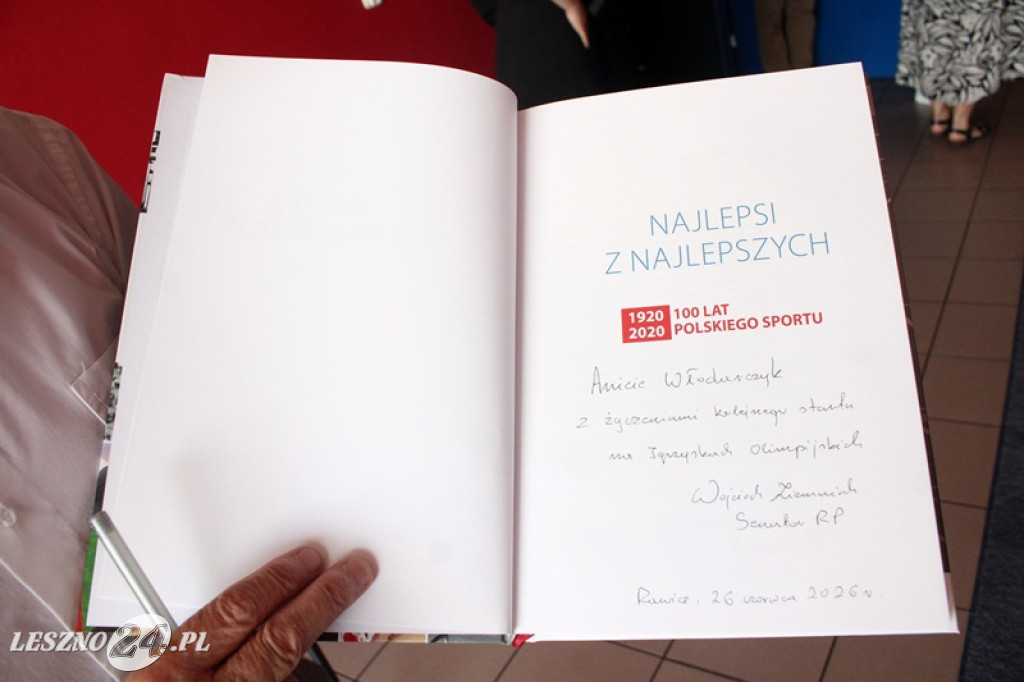 NAJLEPSI
Z NAJLEPSZYCH
1920
2020
100 LAT
POLSKIEGO SPORTU
Anicie Włodarczyk
z życzeniami kolejnego startu
na Igrzyskach Olimpijskich
Wojciech Ziemniak
Senator RP
Rawicz, 26 czerwca 2026 r.
LESZNO24.PL